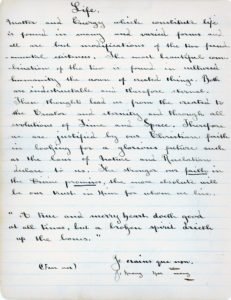 Life.
Matter and Energy which constitute life
is found in many and varied forms and
all are but modifications of the two funda-
mental entities. The most beautiful com-
bination of the two is found in cultured
humanity the crown of created things. Both
are indestructible and therefore eternal.
Then thought lead us from the created to
the Creator and eternity and through all
evolutions of Time and Space. Therefore
we are justified by our Christian faith
in looking for a glorious future such
as the laws of Nature and Revelation
declare to us. The stronger our faith in
the Divine promises, the more absolute will
be our trust in Him for whom we live.
"A true and merry heart doeth good
at all times, but a broken spirit drieth
up the bones."
Je crains que non.